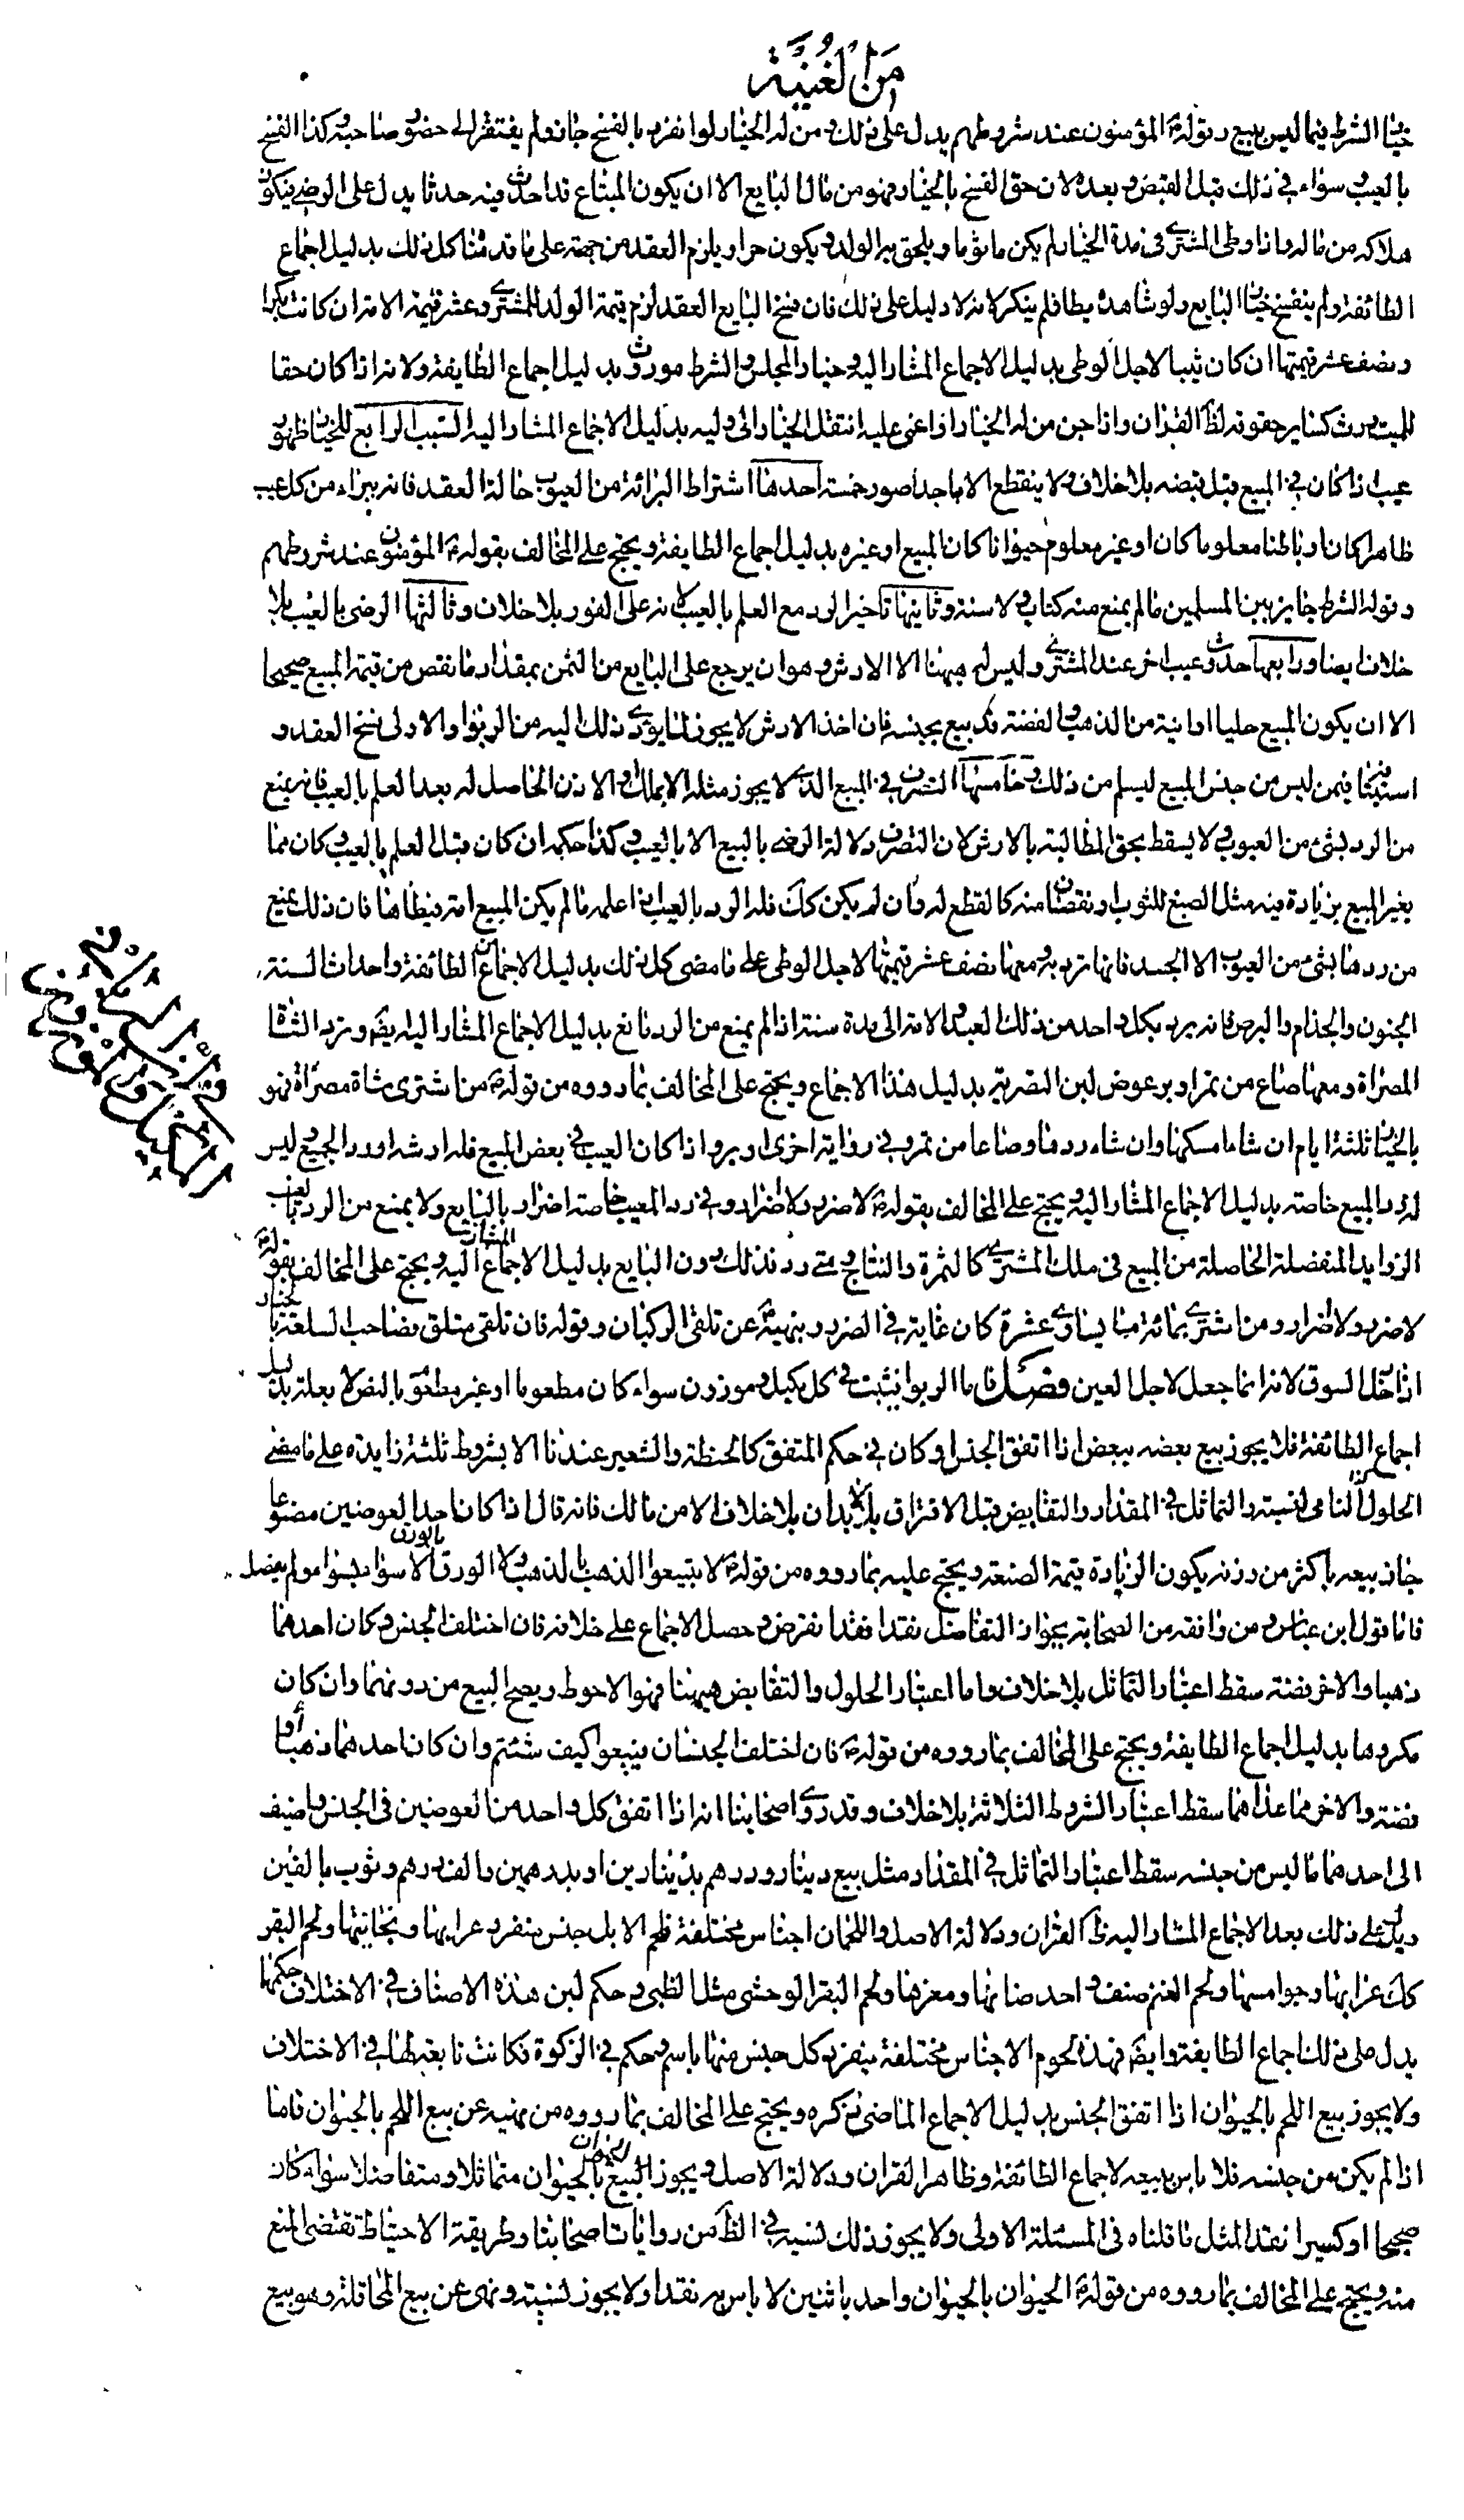 من الغنية
خيار الشرط فيما ليس ببيع وقوله ع المؤمنون عند شروطهم يدل على ذلك ومن له الخيار لو انفرد بالفسخ جاز ولم يفتقر الى حضور صاحبه وكذا الفسخ
بالعيب سواء في ذلك قبل القبض وبعده لان حق الفسخ بالخيار فهو من مال البايع الا ان يكون المبتاع قد احدث فيه حدثا يدل على الرضى فيكون
هلاكه من ماله واذا وطى المشترى في مدة الخيار لم يكن مأثوما ويلحق به الولد ويكون حرا ويلزم العقد من جهته على ما قدمناه كل ذلك بدليل اجماع
الطائفة ولم ينفسخ خيار البايع ولو شاهده يطا فلم ينكر لانه لا دليل على ذلك فان فسخ البايع العقد لزم قيمة الولد للمشترى وعشر قيمة الامة ان كانت بكرا
ونصف عشر قيمتها ان كان ثيبا لاجل الوطى بدليل الاجماع المشار اليه وخيار المجلس والشرط موروث بدليل اجماع الطايفة ولانه اذا كان حقا
للميت يورث كساير حقوقه لظ القران واذا جن من له الخيار اواغمى عليه انتقل الخيار الى وليه بدليل الاجماع المشار اليه السبب الرابع للخيار ظهور
عيب اذا كان في المبيع قبل قبضه بلا خلاف ولا ينقطع الا باحد امور خمسة احدها اشتراط البرائة من العيوب حالة العقد فانه يبراء من كل عيب
ظاهرا كان او باطنا معلوما كان او غير معلوم حيوانا كان المبيع او غيره بدليل اجماع الطايفة ويحتج على المخالف بقوله ع المؤمنون عند شروطهم
وقوله الشرط جايز بين المسلمين ما لم يمنع منه كتاب ولا سنة وثانيها تاخير الرد مع العلم بالعيب لانه على الفور بلا خلاف وثالثها الرضى بالعيب بلا
خلاف ايضا ورابعها حدوث عيب اخر عند المشترى وليس له هيهنا الا الارش وهو ان يرجع على البايع من الثمن بمقدار ما نقص من قيمة المبيع صحيحا
الا ان يكون المبيع حليا او انية من الذهب والفضة قد بيع بجنسه فان اخذ الارش لا يجوز لما يؤدى ذلك اليه من الربوا والاولى فسخ العقد و
استيناف بثمن ليس من جنس المبيع ليسلم من ذلك وخامسها التصرف في المبيع الذى لا يجوز مثله الا بملك او الاذن الحاصل له بعد العلم بالعيب فانه يمنع
من الرد بشئ من العيوب ولا يسقط بحق المطالبة بالارش لان التصرف دلالة الرضى بالبيع لا بالعيب وكذا حكمه ان كان قبل العلم بالعيب وكان مما
يغير المبيع بزيادة فيه مثل الصبغ للثوب او نقصان منه كالقطع له فان لم يكن كك فله الرد بالعيب اذا علمه ما لم يكن المبيع امة فيطاها فان ذلك يمنع
من ردها بشئ من العيوب الا الحبل فانها ترد به ومعها نصف عشر قيمتها لاجل الوطى على ما مضى كل ذلك بدليل الاجماع من الطائفة واحداث السنة
الجنون والجذام والبرص فانه يرد بكل واحد من ذلك العبد والامة الى مدة سنة اذا لم يمنع من الرد مانع بدليل الاجماع المشار اليه ايضا وترد الشاة
المصراة ومعها صاع من تمر او بر عوض لبن التصرية بدليل هذا الاجماع ويحتج على المخالف بما رووه من قوله ع من اشترى شاة مصراة فهو
بالخيار ثلثة ايام ان شاء امسكها وان شاء ردها وصاعا من تمر وفي رواية اخرى او بر واذا كان العيب في بعض المبيع فله ارشه او رد الجميع ليس
له رد المبيع خاصة بدليل الاجماع المشار اليه ويحتج على المخالف بقوله ع لا ضرر ولا ضرار وفي رد المعيب خاصة اضرار بالبايع ولا يمنع من الرد بالعيب
الزوايد المنفصلة الحاصلة من المبيع في ملك المشترى كالثمرة والنتاج ومتى رد فذلك دون البايع بدليل الاجماع المشار اليه ويحتج على المخالف بقوله ع
لا ضرر ولا ضرار ومن اشترى بمائة ما يساوى عشرة كان غاية في الضرر وبنهيه ع عن تلقى الركبان وقوله فان تلقى متلق فصاحب السلعة بالخيار
اذا دخل السوق لانه انما جعل لاجل الغبن فصل فاما الربوا فيثبت في كل مكيل وموزون سواء كان مطعوما او غير مطعوم بالنص لا بعلة بدليل
اجماع الطائفة فلا يجوز بيع بعضه ببعض اذا اتفق الجنس او كان في حكم المتفق كالحنطة والشعير عندنا الا بشروط ثلثة زايدة على ما مضى
الحلول النافى للنسية والتماثل في المقدار والتقابض قبل الافتراق بالابدان بلا خلاف الا من مالك فانه قال اذا كان احد العوضين مصوغا
جاز بيعه باكثر من وزنه يكون الزيادة قيمة الصنعة ويحتج عليه بما رووه من قوله ع لا تبيعوا الذهب بالذهب ولا الورق بالورق الا سواء بسواء ولم يفصل
فاما قول ابن عباس ومن وافقه من الصحابة بجواز التفاضل نقدا فقد انقرض وحصل الاجماع على خلافه فان اختلف الجنس وكان احدهما
ذهبا والاخر فضة سقط اعتبار التماثل بلا خلاف واما اعتبار الحلول والتقابض هيهنا فهو الاحوط ويصح البيع من دونهما وان كان
مكروها بدليل اجماع الطايفة ويحتج على المخالف بما رووه من قوله ع فان اختلف الجنسان فبيعوا كيف شئتم وان كان احدهما ذهبا او
فضة والاخر مما عداهما سقط اعتبار الشروط الثلاثة بلا خلاف وقد روى اصحابنا انه اذا اتفق كل واحد من العوضين في الجنس واضيف
الى احدهما ما ليس من جنسه سقط اعتبار التماثل في المقدار مثل بيع دينار ودرهم بدينارين او بدرهمين والف درهم وثوب بالفين
ويدل على ذلك بعد الاجماع المشار اليه ظ القران ودلالة الاصل واللحمان اجناس مختلفة فلحم الابل جنس منفرد عرابها ونجاتيها ولحم البقر
كك عرابها وجواميسها ولحم الغنم صنف واحد ضانها ومعزها ولحم البقر الوحشى مثل الظبى وحكم لبن هذه الاصناف في الاختلاف حكمها
يدل على ذلك اجماع الطايفة وايضا فهذه لحوم الاجناس مختلفة ينفرد كل جنس منها باسم وحكم في الزكوة فكانت تابعة لها في الاختلاف
ولا يجوز بيع اللحم بالحيوان اذا اتفق الجنس بدليل الاجماع الماضى ذكره ويحتج على المخالف بما رووه من نهيه عن بيع اللحم بالحيوان فاما
اذا لم يكن من جنسه فلا باس ببيعه لاجماع الطائفة وظاهر القران ودلالة الاصل ويجوز البيع الحيوان بالحيوان متماثلا ومتفاضلا سواء كان
صحيحا او كسيرا نقدا لمثل ما قلناه في المسئلة الاولى ولا يجوز ذلك نسية في الظ من روايات اصحابنا وطريقة الاحتياط تقتضى المنع
منه ويحتج على المخالف بما رووه من قوله ع الحيوان بالحيوان واحد باثنين لا باس به نقدا ولا يجوز نسية ونهى عن بيع المحاقلة وهو بيع